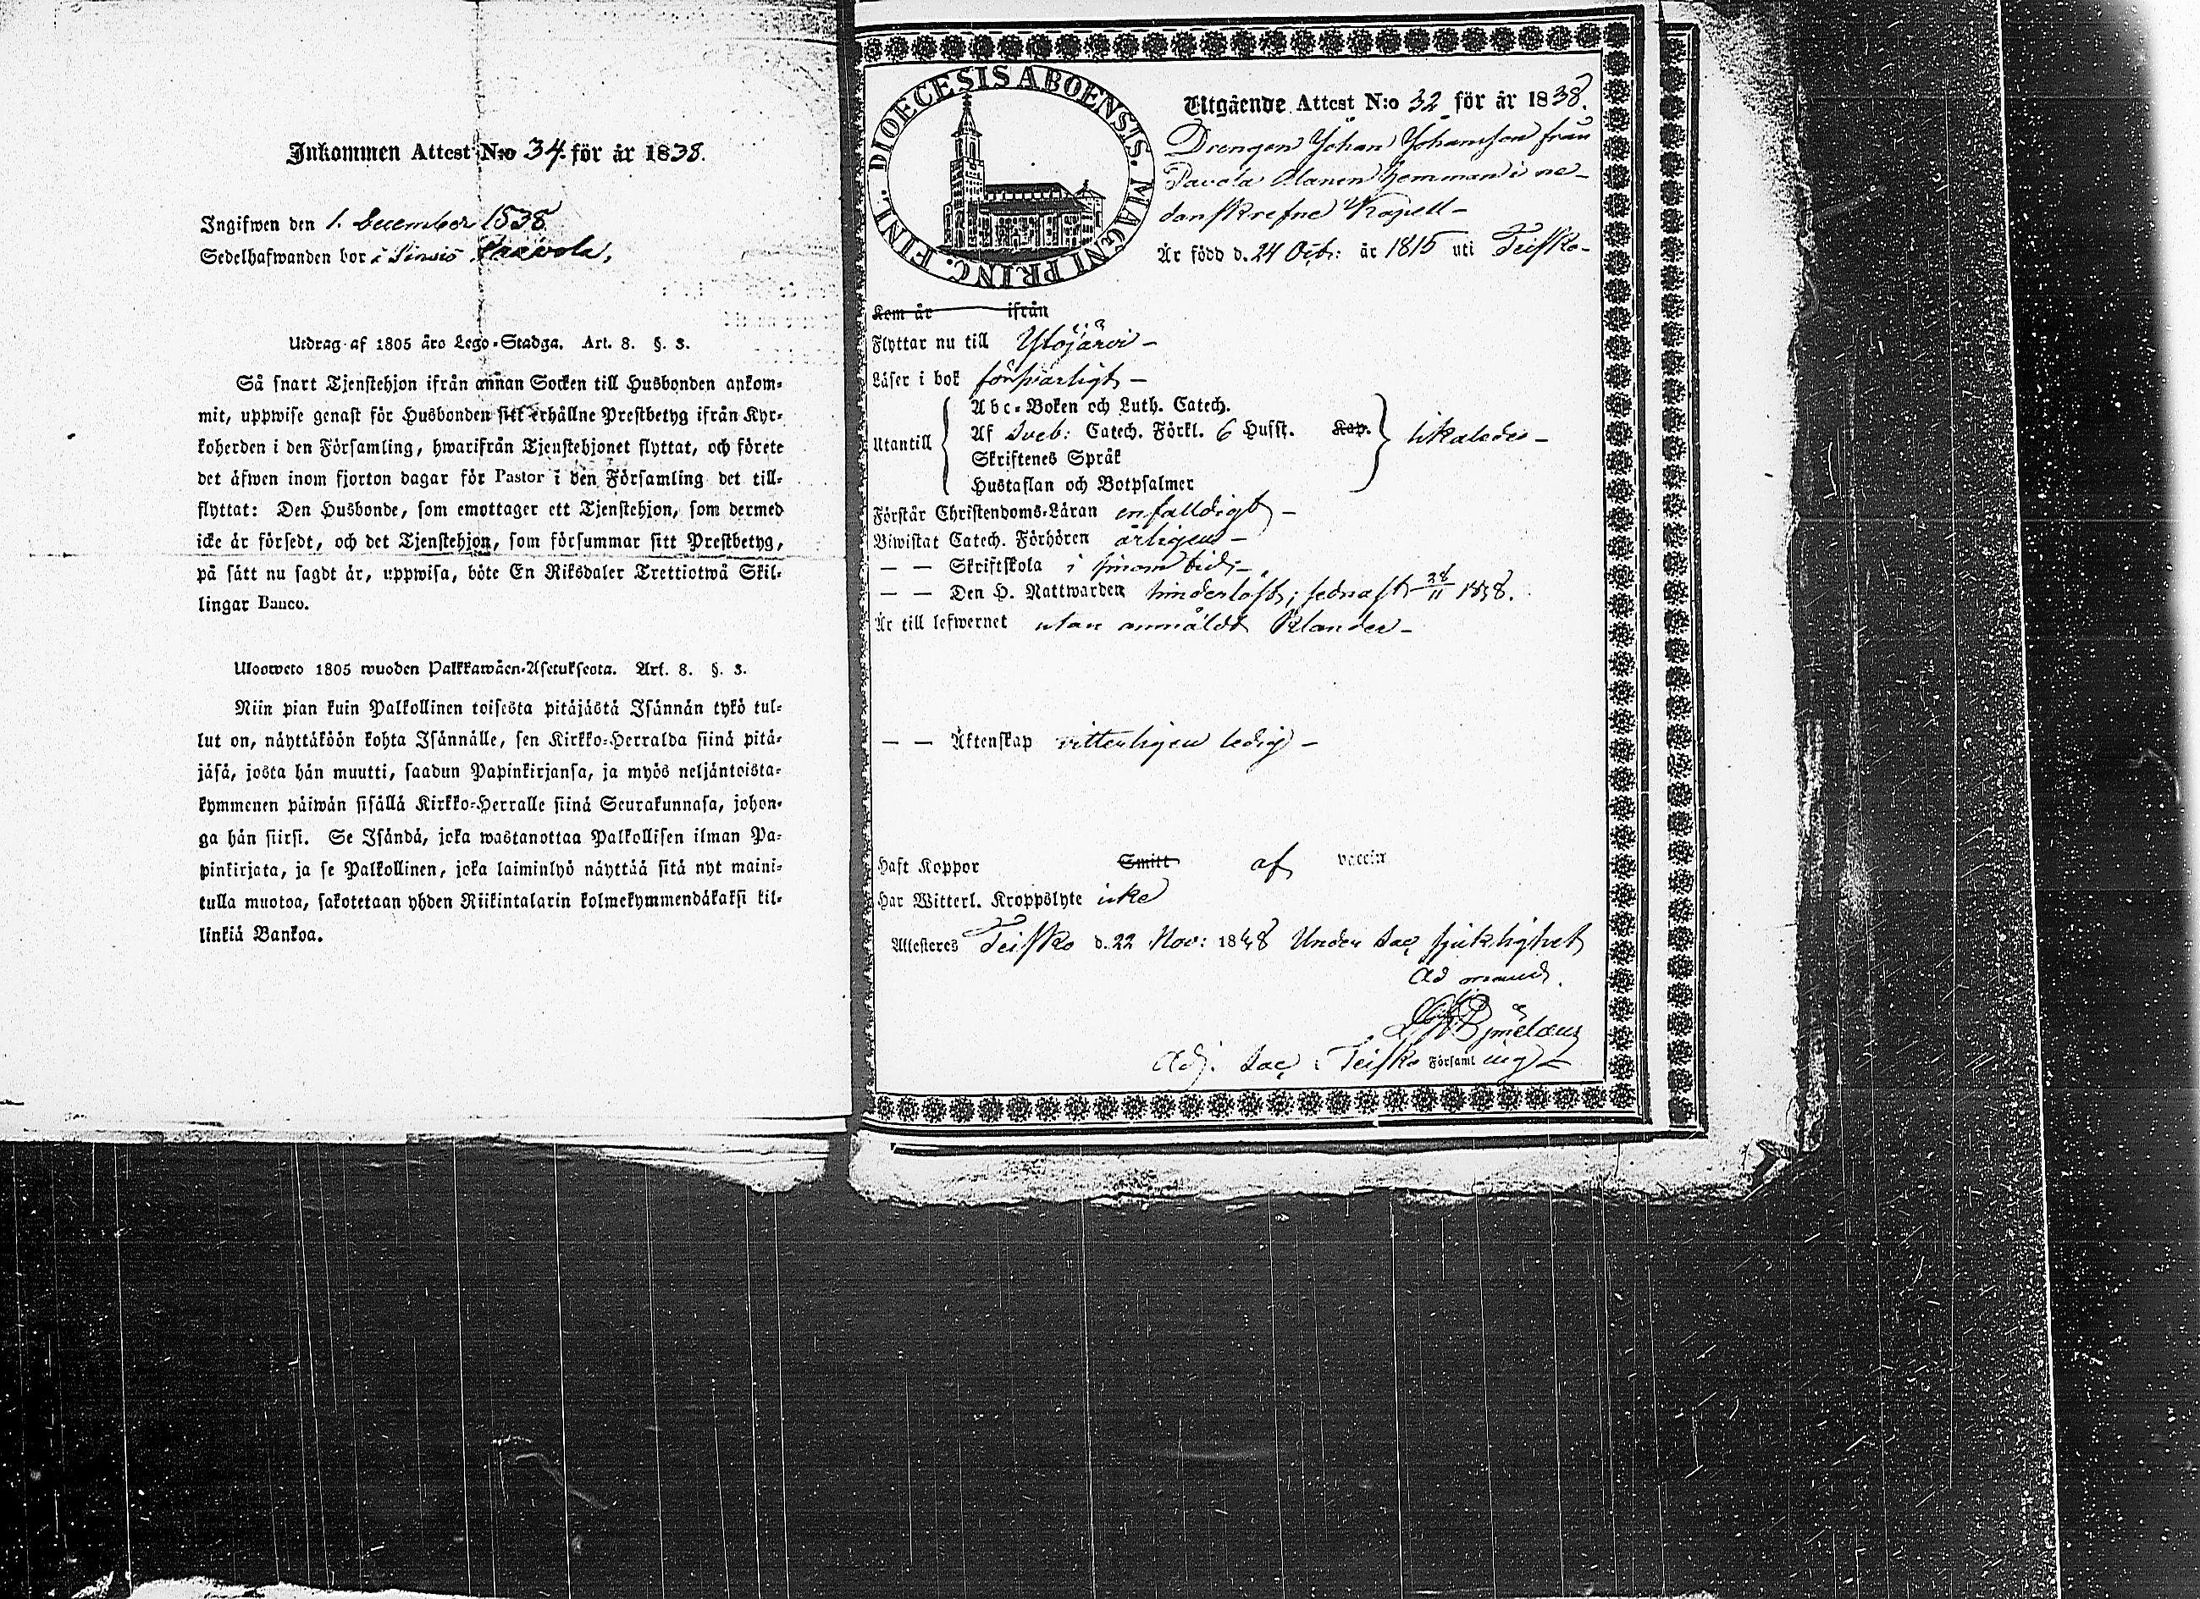 Inkommen Attest N:o 34. för år 1838.
Ingifwen den 1. December 1838
Sedelhafwanden bor i Sinsiö
Utdrag af 1805 års Lego-Stadga. Art. 8. §. 3.
Så snart Tjenstehjon ifrån annan Socken till Husbonden ankom-
mit, uppwise genast för Husbonden sitt erhållne Prestbetyg ifrån Kyr-
koherden i den Församling, hwarifrån Tjenstehjonet flyttat, och förete
det äfwen inom fjorton dagar för Pastor i den Församling det till-
flyttat: Den Husbonde, som emottager ett Tjenstehjon, som dermed
icke är försedt, och det Tjenstehjon, som försummar sitt Prestbetyg,
på sätt nu sagdt är, uppwisa, böte En Riksdaler Trettiotwå Skil-
lingar Banco.
Ulosweto 1805 wuoden Palkkawäen-Asetuksesta. Art. 8. §. 3.
Niin pian kuin Palkollinen toisesta pitäjästä Isännän tykö tul-
lut on, näyttäköön kohta Isännälle, sen Kirkko-Herralda siinä pitä-
jäsä, josta hän muutti, saadun Papinkirjansa, ja myös neljäntoista-
kymmenen päiwän sisällä Kirkko-Herralle siinä Seurakunnasa, johon-
ga hän siirsi. Se Isändä, joka wastanottaa Palkollisen ilman Pa-
pinkirjata, ja se Palkollinen, joka laiminlyö näyttää sitä nyt maini-
tulla muotoa, sakotetaan yhden Riikintalarin kolmekymmendäkaksi kil-
linkiä Bankoa.
DIOECESIS ABOENSIS. MAGNI PRINC. FINL.
Utgående Attest N:o 32 för år 1838.
Drengen Johan Johansson från
Pavola Alanen hemman i ne-
danskrefne Kapell-
Är född d. 24 Octb: år 1815 uti Teisko-
Kom år ifrån
Flyttar nu till Ylöjärvi -
Läser i bok försvarligt -
Abc-Boken och Luth. Catech.
Utantill Af Sveb: Catech. Förkl. 6 Hufst. Kap. likaledes -
Skriftenes Språk
Hustaflan och Botpsalmer
Förstår Christendoms-Läran enfalldigt -
Biwistat Catech. Förhören årligen -
— — Skriftskola i sinom tid -
— — Den H. Nattwarden hinderlöst, sednast 1838.
Är till lefwernet utan anmäldt klander -
— — Äktenskap vitterligen ledig -
Haft Koppor Smitt af vaccin
Har Witterl. Kroppslyte icke
Attesteres Teisko d. 22 Nov: 1838 Under Sac. sjuklighet
Ad mand.
Adj. Sac. i Teisko Församling -